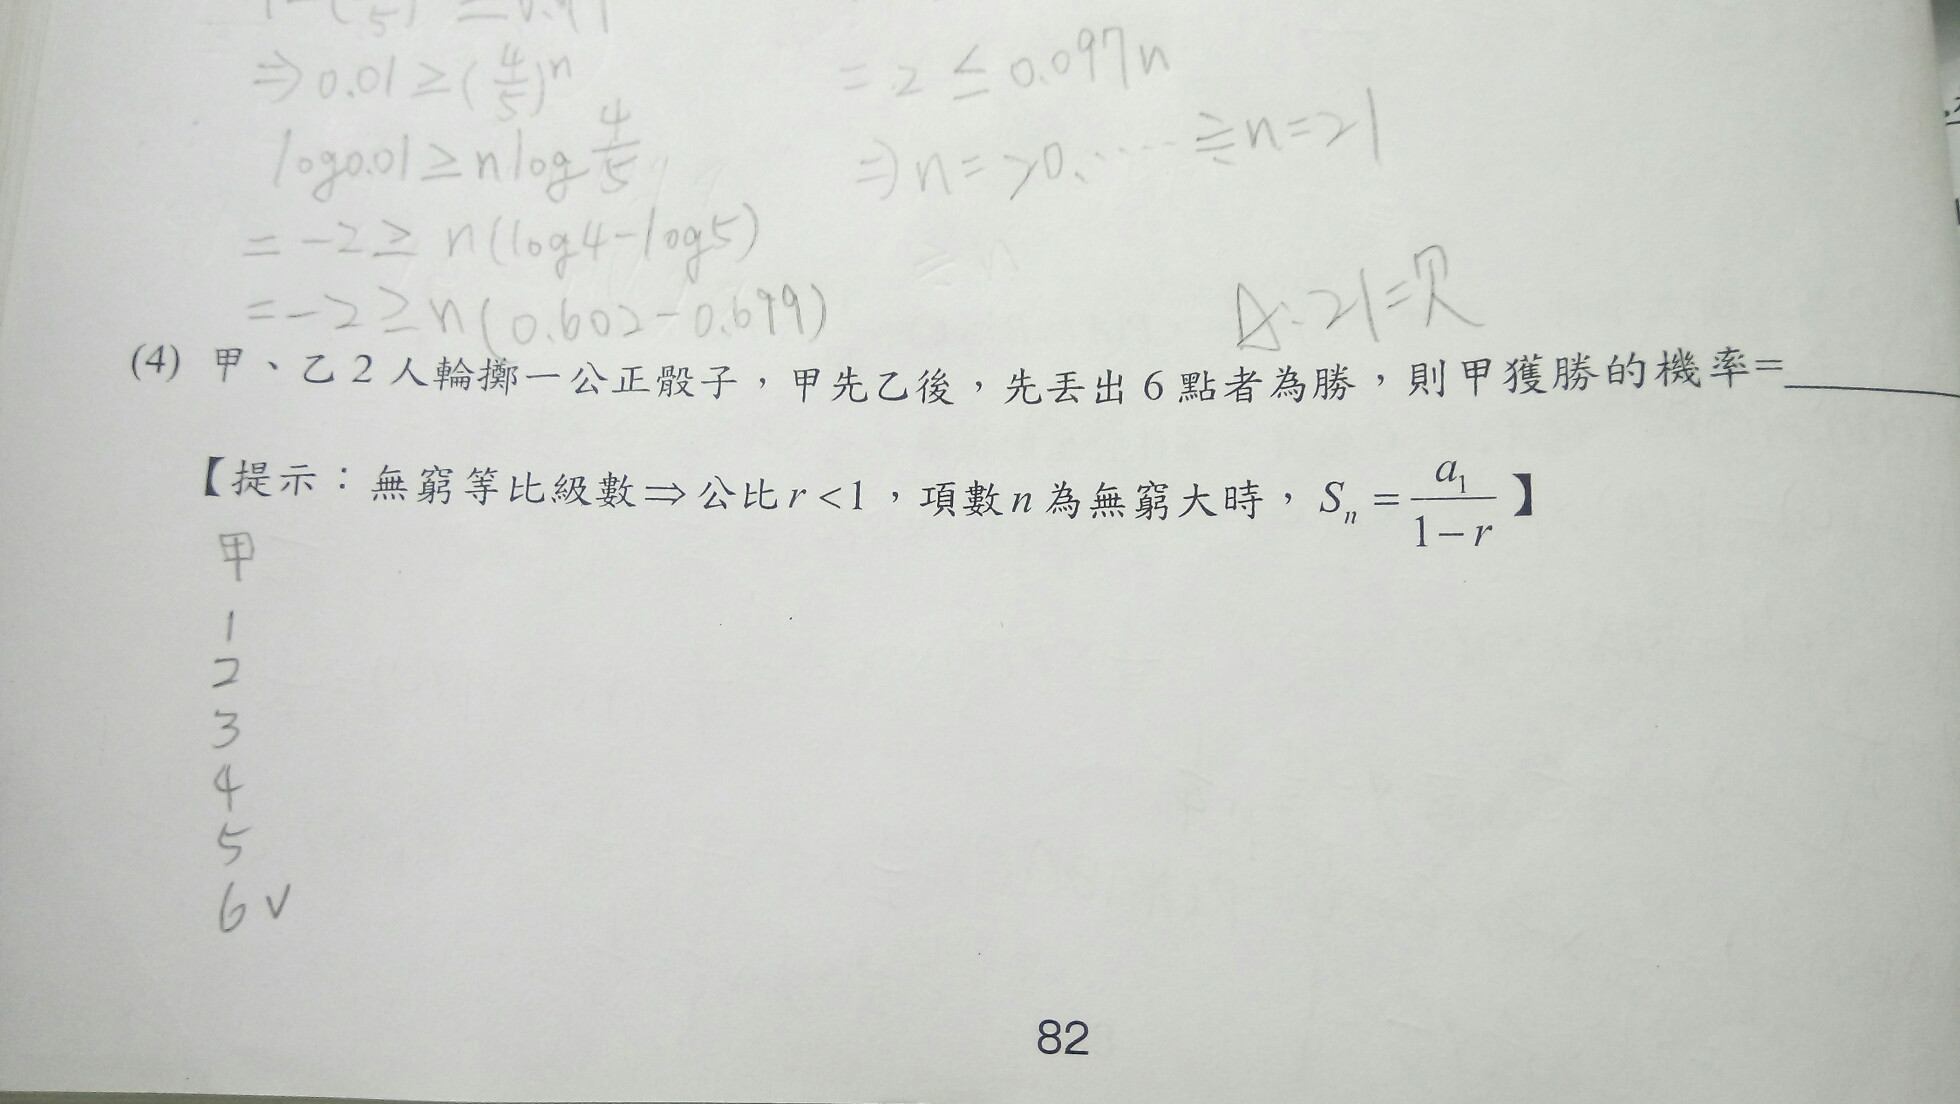 ⇒ 0.01 ≥ (4/5)^n
log0.01 ≥ n log 4/5
= -2 ≥ n(log4-log5)
= -2 ≥ n(0.602-0.699)
= 2 ≤ 0.097n
⇒ n = 20.…… ≒ n = 21
A:21次
(4) 甲、乙2人輪擲一公正骰子，甲先乙後，先丟出6點者為勝，則甲獲勝的機率=
【提示：無窮等比級數⇒公比r<1，項數n為無窮大時，Sₙ = a₁/(1-r)】
甲
1
2
3
4
5
6 v
82